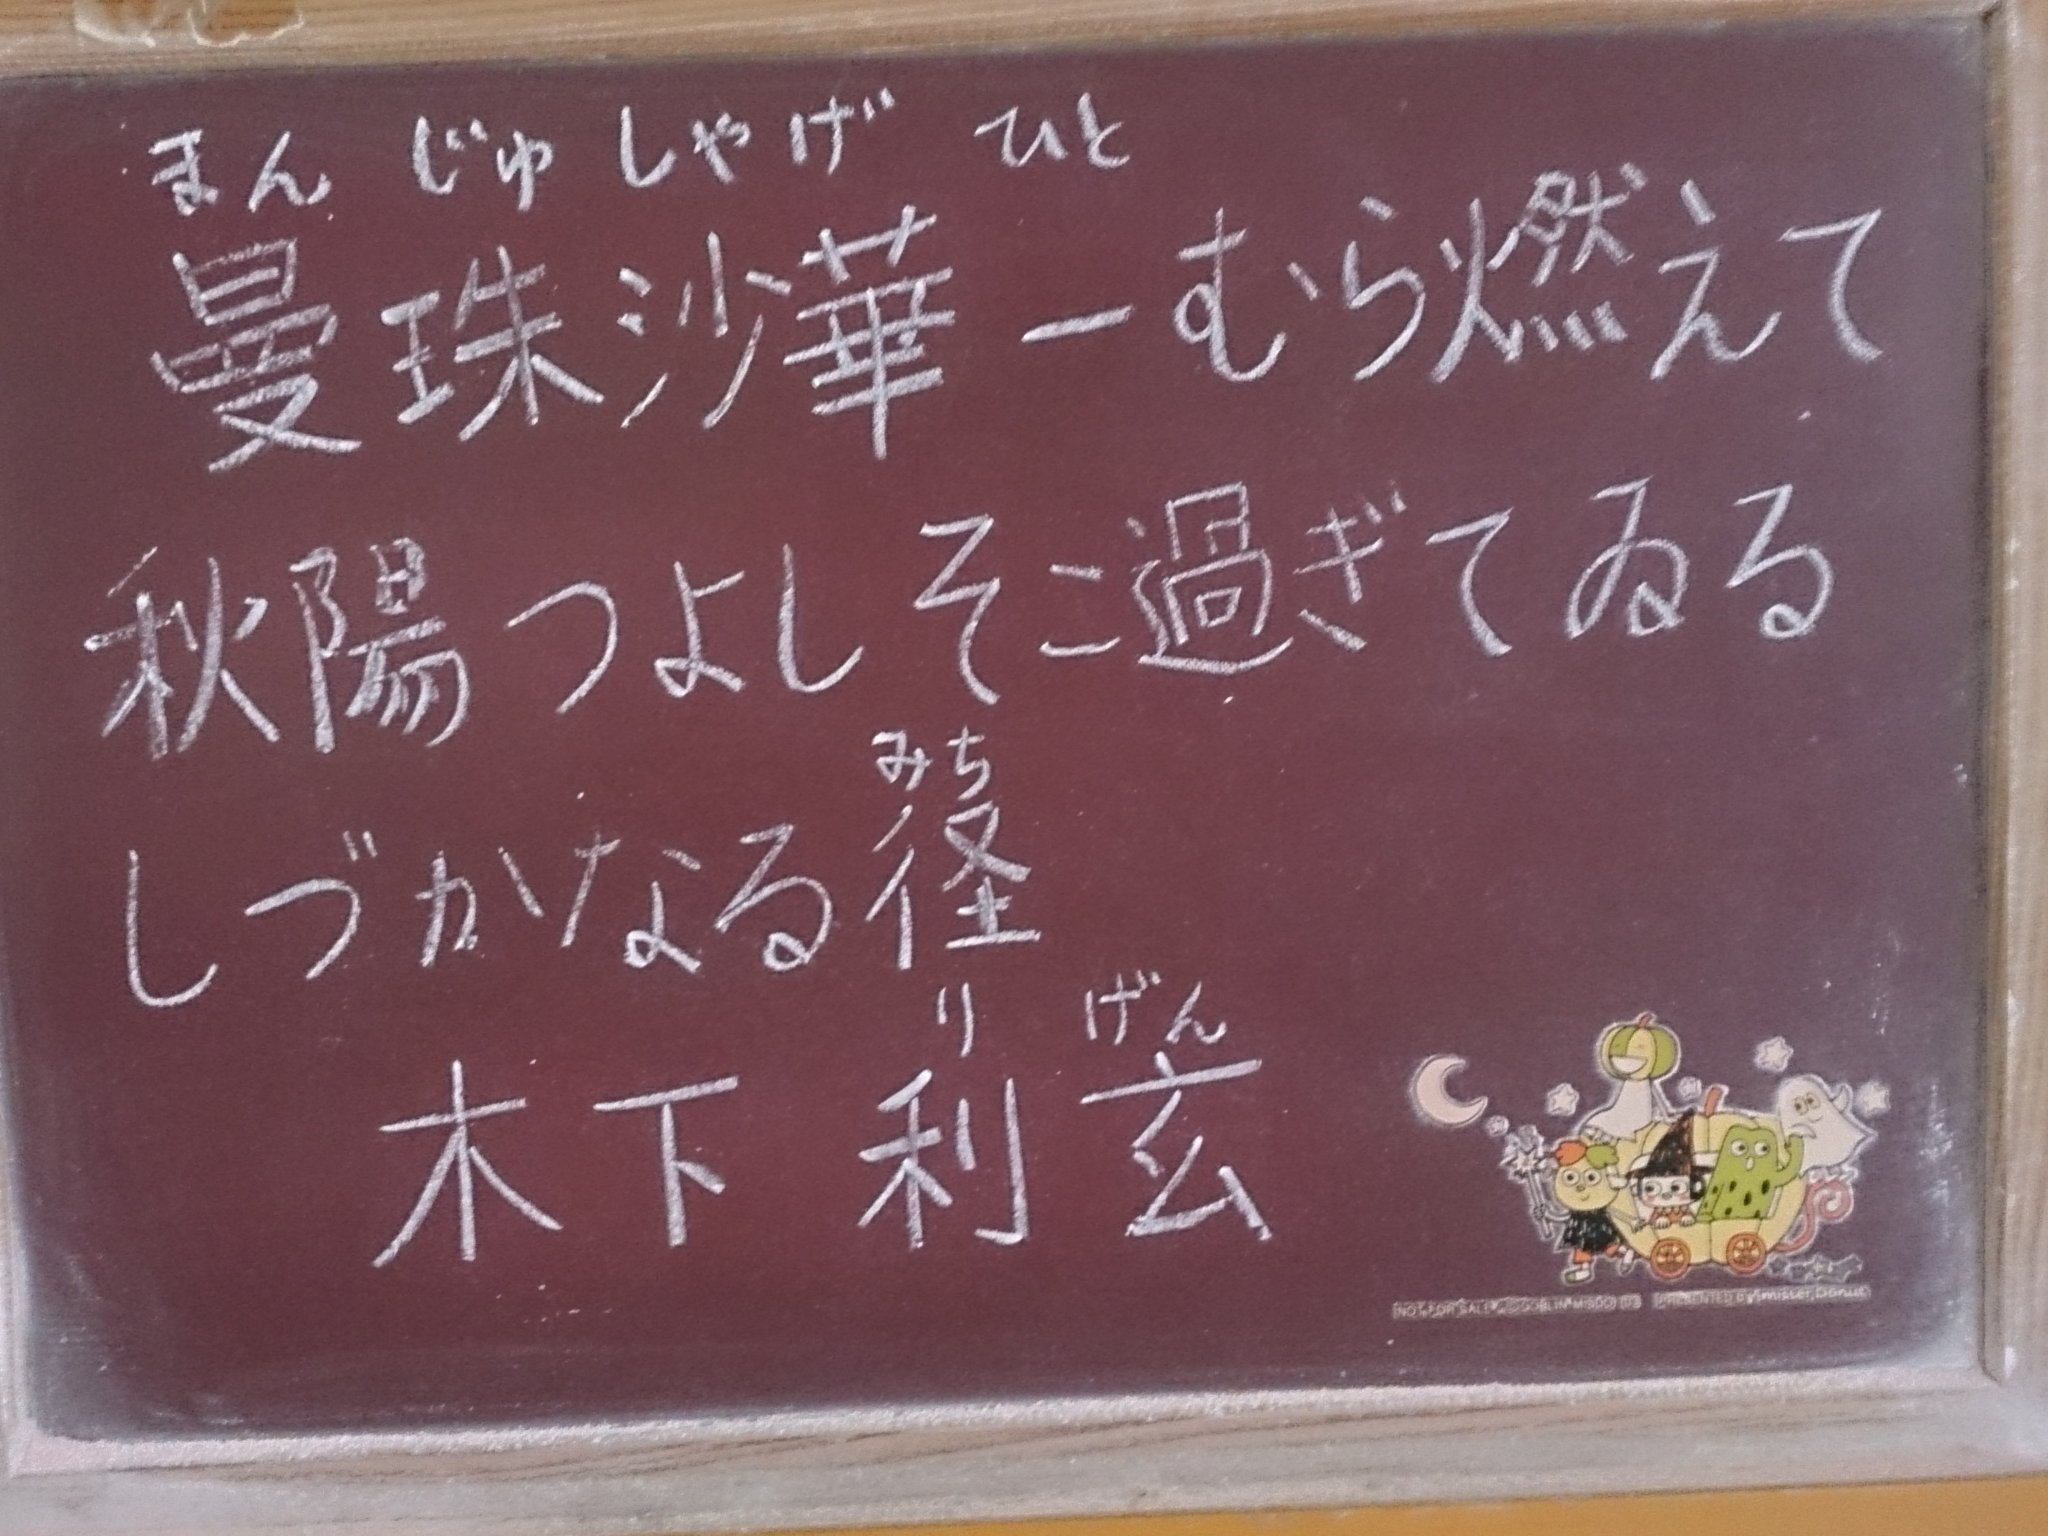 まんじゅしゃげ ひと
曼珠沙華一むら燃えて
秋陽つよしそこ過ぎてゐる
みち
しづかなる径
り げん
木下利玄
NOT FOR SALE PRESENTED BY mister Donut